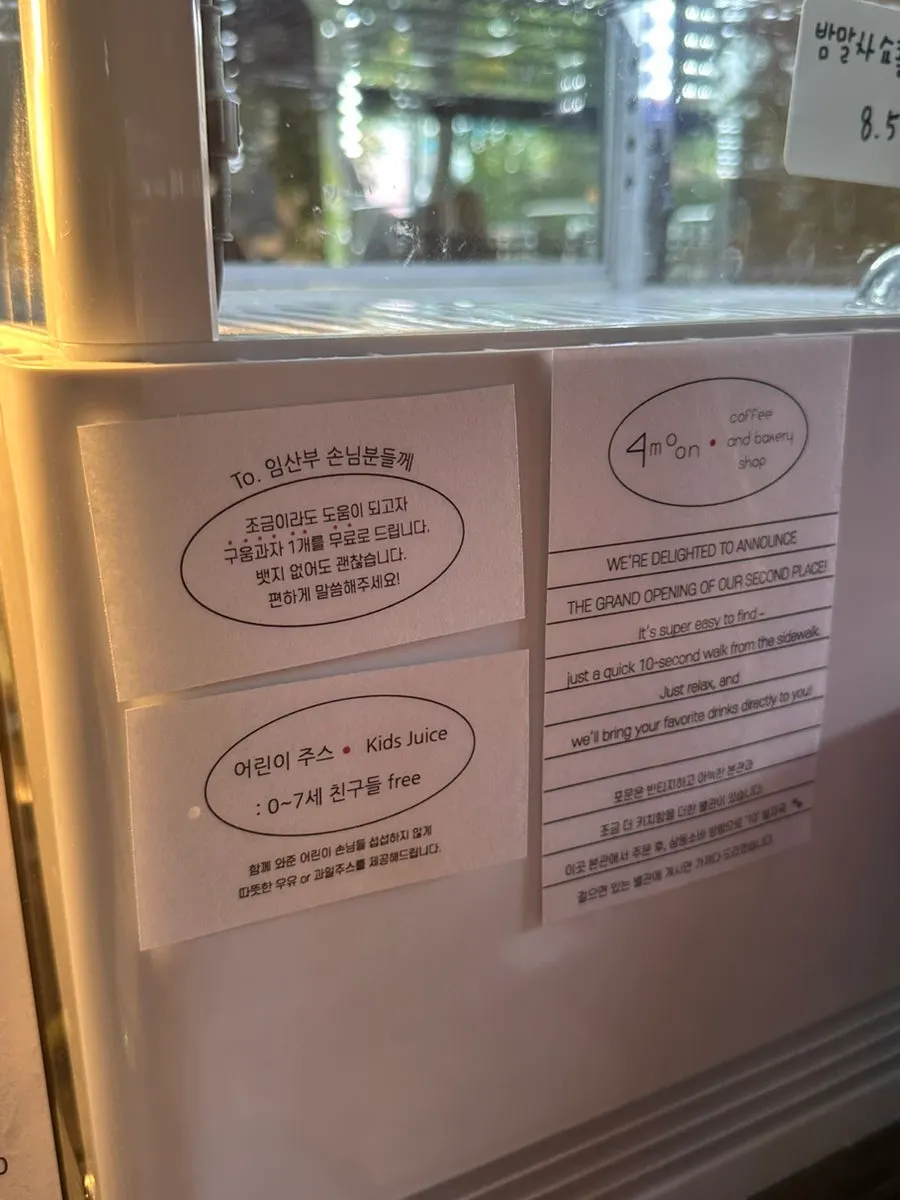 밤말차쇼콜
8.5
To. 임산부 손님분들께
조금이라도 도움이 되고자
구움과자 1개를 무료로 드립니다.
뱃지 없어도 괜찮습니다.
편하게 말씀해주세요!
어린이 주스 • Kids Juice
: 0~7세 친구들 free
함께 와준 어린이 손님들 섭섭하지 않게
따뜻한 우유 or 과일주스를 제공해드립니다.
4moon • coffee
and bakery
shop
WE'RE DELIGHTED TO ANNOUNCE
THE GRAND OPENING OF OUR SECOND PLACE!
It's super easy to find -
just a quick 10-second walk from the sidewalk.
Just relax, and
we'll bring your favorite drinks directly to you!
포문은 빈티지하고 아늑한 본관과
조금 더 키치함을 더한 별관이 있습니다.
이곳 본관에서 주문 후, 삼동소바 방향으로 '10' 발자국
걸으면 있는 별관에 계시면 가져다 드리겠습니다.